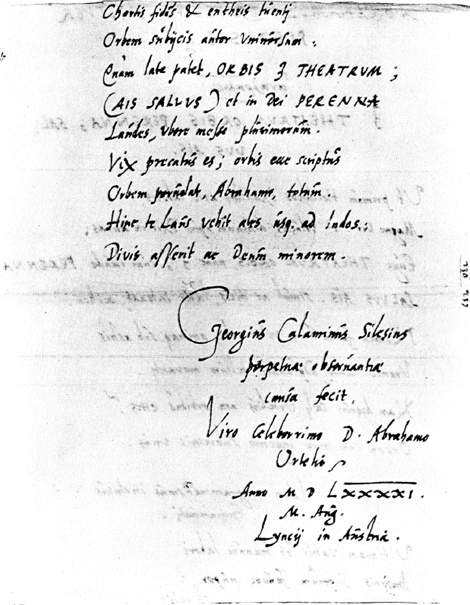 Chartis fidis & entheis tuentj
Orbem subijcis autor vniuersum :
Quàm late patet, ORBIS Z THEATRVM ;
(AIS SALLUS) et in Dei PERENNA
Laudes, vbere messe plurimorum.
Vix precatus es ; orbis ecce scriptus
Orbem peruolat, Abrahame, totum.
Hinc te Laus vehit ales usq. ad Indos.:
Divis asserit ac Deum minorem.
Georgius Calaminus Silesius
perpetuæ obseruantiæ
causa fecit.
Viro Celeberrimo D. Abrahamo
Ortelio
Anno M D LXXXXI.
M. Aug.
Lyncij in Austria.